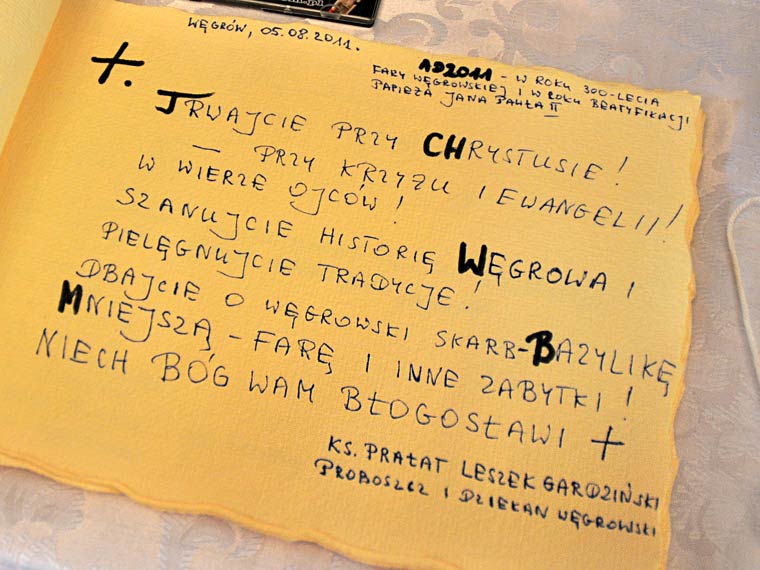 WĘGRÓW, 05.08.2011.
AD2011 - W ROKU 300-LECIA
FARY WĘGROWSKIEJ I W ROKU BEATYFIKACJI
PAPIEŻA JANA PAWŁA II
+. TRWAJCIE PRZY CHRYSTUSIE!
— PRZY KRZYŻU I EWANGELII!
W WIERZE OJCÓW!
SZANUJCIE HISTORIĘ WĘGROWA I
PIELĘGNUJCIE TRADYCJE!
DBAJCIE O WĘGROWSKI SKARB-BAZYLIKĘ
MNIEJSZĄ - FARĘ I INNE ZABYTKI!
NIECH BÓG WAM BŁOGOSŁAWI +
KS. PRAŁAT LESZEK GARDZIŃSKI
PROBOSZCZ I DZIEKAN WĘGROWSKI